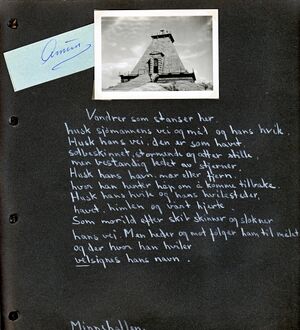 Vandrer som stanser her,
husk sjömannens vei og mål og hans hvile.
Husk hans vei, den er som havet
solbeskinnet, stormende og atter stille,
men bestandig ledet av stjerner.
Husk hans havn, nær eller fjern,
hvor han henter håp om å komme tilbake.
Husk hans hvile og hans hvilesteder,
havet, himlen og vårt hjerte
Som morild efter skib skinner og slokner
hans vei. Men heder og mot følger ham til målet
og der hvor han hviler
velsignes hans navn.
Minnehallen.